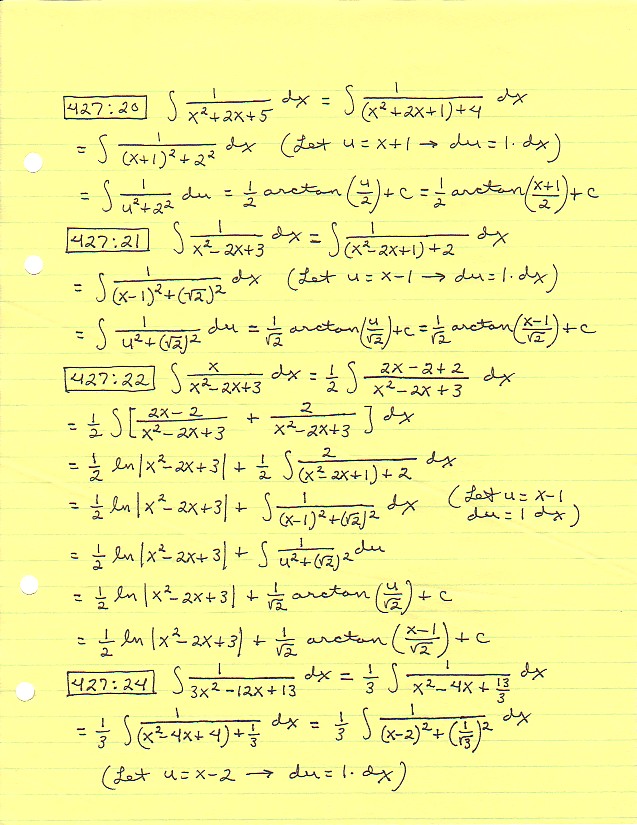 427:20 ∫ 1/(x²+2x+5) dx = ∫ 1/((x²+2x+1)+4) dx
= ∫ 1/((x+1)²+2²) dx (Let u = x+1 → du = 1·dx)
= ∫ 1/(u²+2²) du = 1/2 arctan(u/2)+c = 1/2 arctan((x+1)/2)+c
427:21 ∫ 1/(x²-2x+3) dx = ∫ 1/((x²-2x+1)+2) dx
= ∫ 1/((x-1)²+(√2)²) dx (Let u = x-1 → du = 1·dx)
= ∫ 1/(u²+(√2)²) du = 1/√2 arctan(u/√2)+c = 1/√2 arctan((x-1)/√2)+c
427:22 ∫ x/(x²-2x+3) dx = 1/2 ∫ (2x-2+2)/(x²-2x+3) dx
= 1/2 ∫ [(2x-2)/(x²-2x+3) + 2/(x²-2x+3)] dx
= 1/2 ln|x²-2x+3| + 1/2 ∫ 2/((x²-2x+1)+2) dx
= 1/2 ln|x²-2x+3| + ∫ 1/((x-1)²+(√2)²) dx (Let u = x-1
du = 1 dx)
= 1/2 ln|x²-2x+3| + ∫ 1/(u²+(√2)²) du
= 1/2 ln|x²-2x+3| + 1/√2 arctan(u/√2) + c
= 1/2 ln|x²-2x+3| + 1/√2 arctan((x-1)/√2) + c
427:24 ∫ 1/(3x²-12x+13) dx = 1/3 ∫ 1/(x²-4x+13/3) dx
= 1/3 ∫ 1/((x²-4x+4)+1/3) dx = 1/3 ∫ 1/((x-2)²+(1/√3)²) dx
(Let u = x-2 → du = 1·dx)